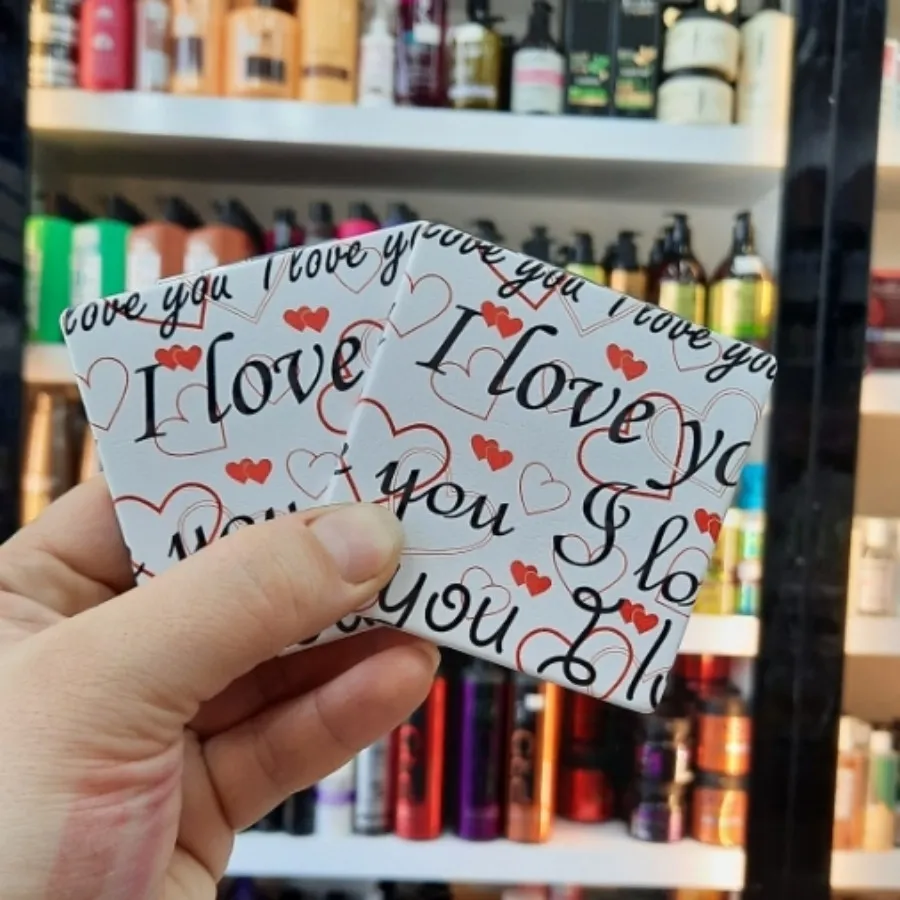 love you I love y
I love
you
love you I love you
I love yo
you I lo
you I l